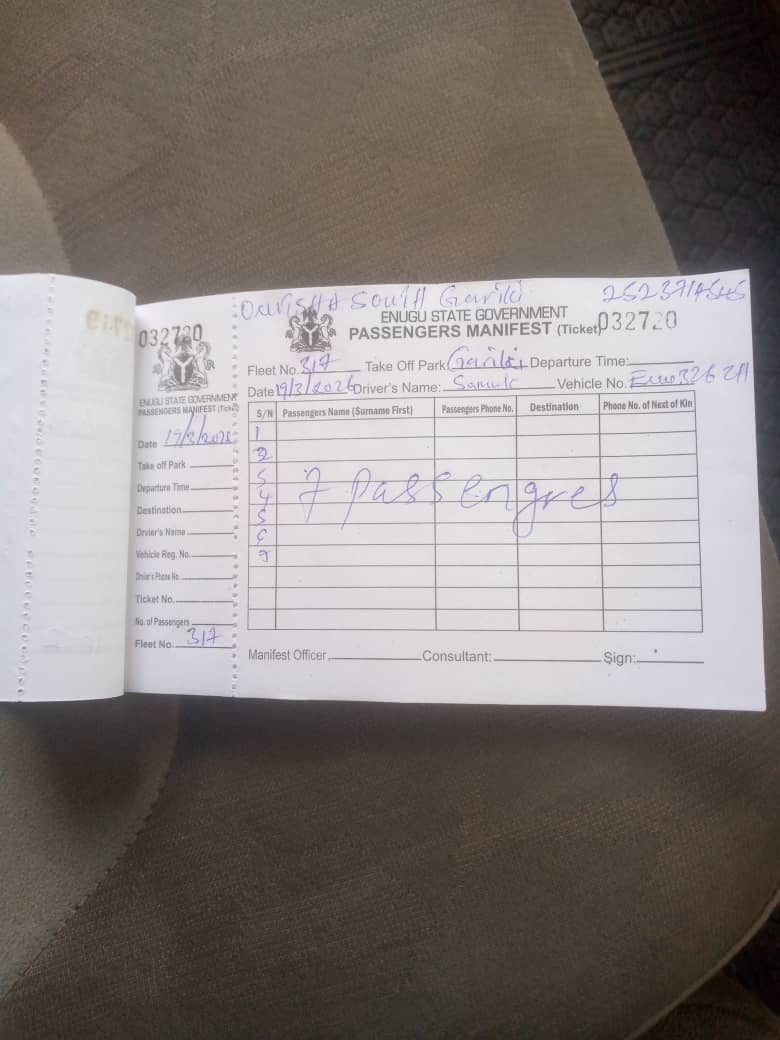 032720
ENUGU STATE GOVERNMENT
PASSENGERS MANIFEST (Ticket)
Date 19/3/2026
Take off Park
Departure Time
Destination
Drvier's Name
Vehicle Reg. No.
Driver's Phone No.
Ticket No.
No. of Passengers
Fleet No. 317
South Gariki
ENUGU STATE GOVERNMENT
PASSENGERS MANIFEST (Ticket) 032720
Fleet No. 317 Take Off Park Gariki Departure Time:
Date 19/3/2026 Driver's Name: Vehicle No.
S/N Passengers Name (Surname First) Passengers Phone No. Destination Phone No. of Next of Kin
1
2
3
4
5
6
7
7 passengres
Manifest Officer Consultant: Sign: